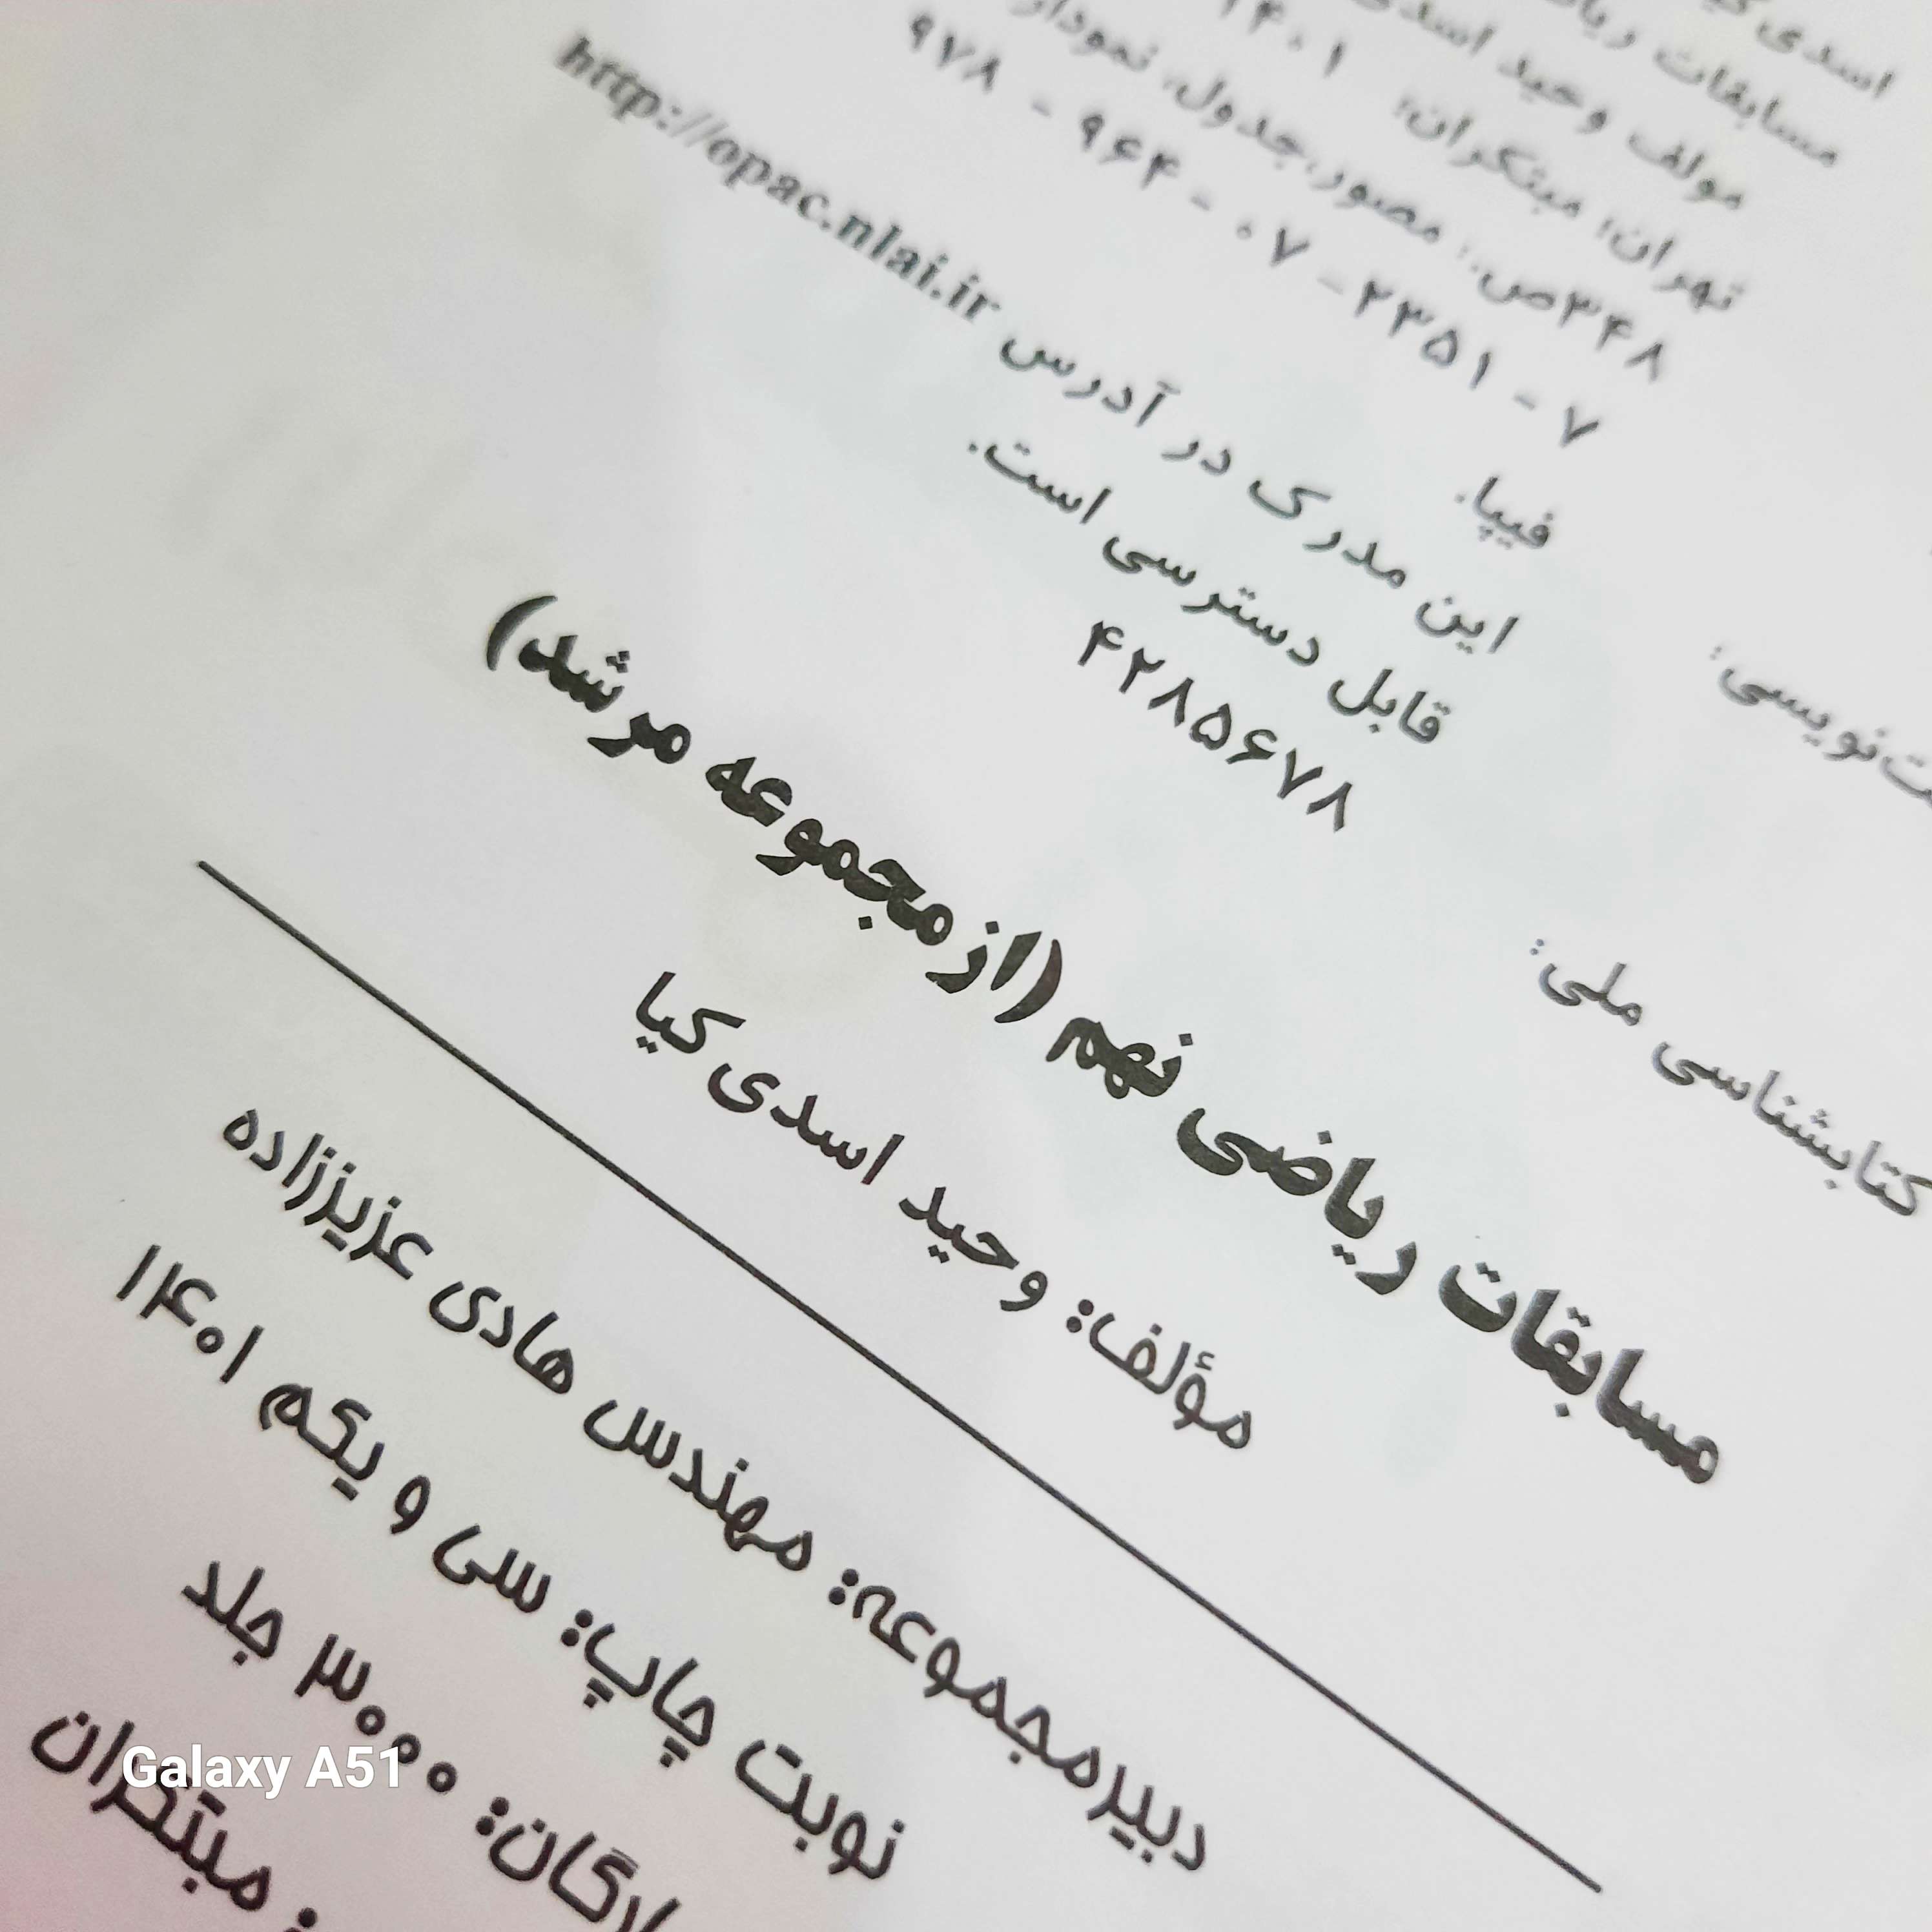 اسدی
مسابقات
مولف وحید اسدی
تهران: مبتکران، ۱۴۰۱
۳۴۸ص.: مصور، جدول، نمودار
۹۷۸ - ۹۶۴ - ۰۷ - ۲۳۵۱ - ۷
فیپا.
این مدرک در آدرس http://opac.nlai.ir
قابل دسترسی است.
کتابشناسی ملی: ۴۲۸۵۶۷۸
مسابقات ریاضی نهم (از مجموعه مرشد)
مؤلف: وحید اسدی کیا
دبیرمجموعه: مهندس هادی عزیززاده
نوبت چاپ: سی و یکم ۱۴۰۱
۳۰۰۰ جلد
مبتکران
Galaxy A51